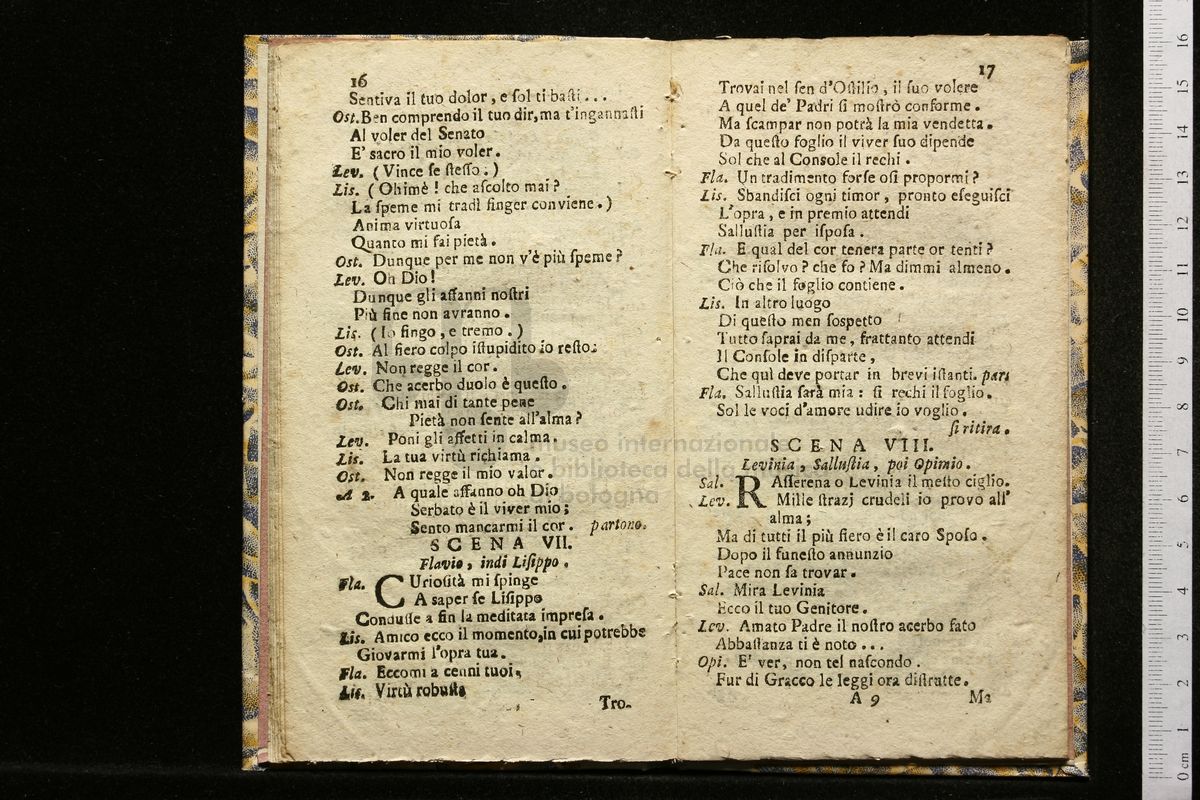 16
Sentiva il tuo dolor, e ſol ti baſti...
Ost. Ben comprendo il tuo dir, ma t'ingannaſti
Al voler del Senato
E' sacro il mio voler.
Lev. (Vince ſe ſteſſo.)
Lis. (Ohimè! che aſcolto mai?
La ſpeme mi tradì finger conviene.)
Anima virtuoſa
Quanto mi fai pietà.
Ost. Dunque per me non v'è più ſpeme?
Lev. Oh Dio!
Dunque gli affanni noſtri
Più fine non avranno.
Lis. (Io fingo, e tremo.)
Ost. Al fiero colpo iſtupidito io reſto.
Lev. Non regge il cor.
Ost. Che acerbo duolo è queſto.
Ost. Chi mai di tante pene
Pietà non ſente all'alma?
Lev. Poni gli affetti in calma.
Lis. La tua virtù richiama.
Ost. Non regge il mio valor.
A 2. A quale affanno oh Dio
Serbato è il viver mio;
Sento mancarmi il cor. partono.
SCENA VII.
Flavio, indi Liſippo.
Fla. CUrioſità mi ſpinge
A saper ſe Liſippo
Conduſſe a fin la meditata impreſa.
Lis. Amico ecco il momento, in cui potrebbe
Giovarmi l'opra tua.
Fla. Eccomi a cenni tuoi,
Lis. Virtù robuſta
Tro-
17
Trovai nel ſen d'Oſtilio, il ſuo volere
A quel de' Padri ſi moſtrò conforme.
Ma ſcampar non potrà la mia vendetta.
Da queſto foglio il viver ſuo dipende
Sol che al Console il rechi.
Fla. Un tradimento forſe oſi propormi?
Lis. Sbandiſci ogni timor, pronto eſeguiſci
L'opra, e in premio attendi
Salluſtia per iſpoſa.
Fla. E qual del cor tenera parte or tenti?
Che riſolvo? che fo? Ma dimmi almeno.
Ciò che il foglio contiene.
Lis. In altro luogo
Di queſto men ſospetto
Tutto ſaprai da me, frattanto attendi
Il Conſole in diſparte,
Che quì deve portar in brevi iſtanti. part
Fla. Salluſtia ſarà mia: ſi rechi il foglio.
Sol le voci d'amore udire io voglio.
ſi ritira.
SCENA VIII.
Levinia, Salluſtia, poi Opimio.
Sal. RAſſerena o Levinia il meſto ciglio.
Lev. Mille ſtrazj crudeli io provo all'
alma;
Ma di tutti il più fiero è il caro Spoſo.
Dopo il funeſto annunzio
Pace non ſa trovar.
Sal. Mira Levinia
Ecco il tuo Genitore.
Lev. Amato Padre il noſtro acerbo fato
Abbaſtanza ti è noto...
Opi. E' ver, non tel naſcondo.
Fur di Gracco le leggi ora diſtrutte.
A 9 Ma
museo internazionale
biblioteca della
bologna
0 cm 1 2 3 4 5 6 7 8 9 10 11 12 13 14 15 16